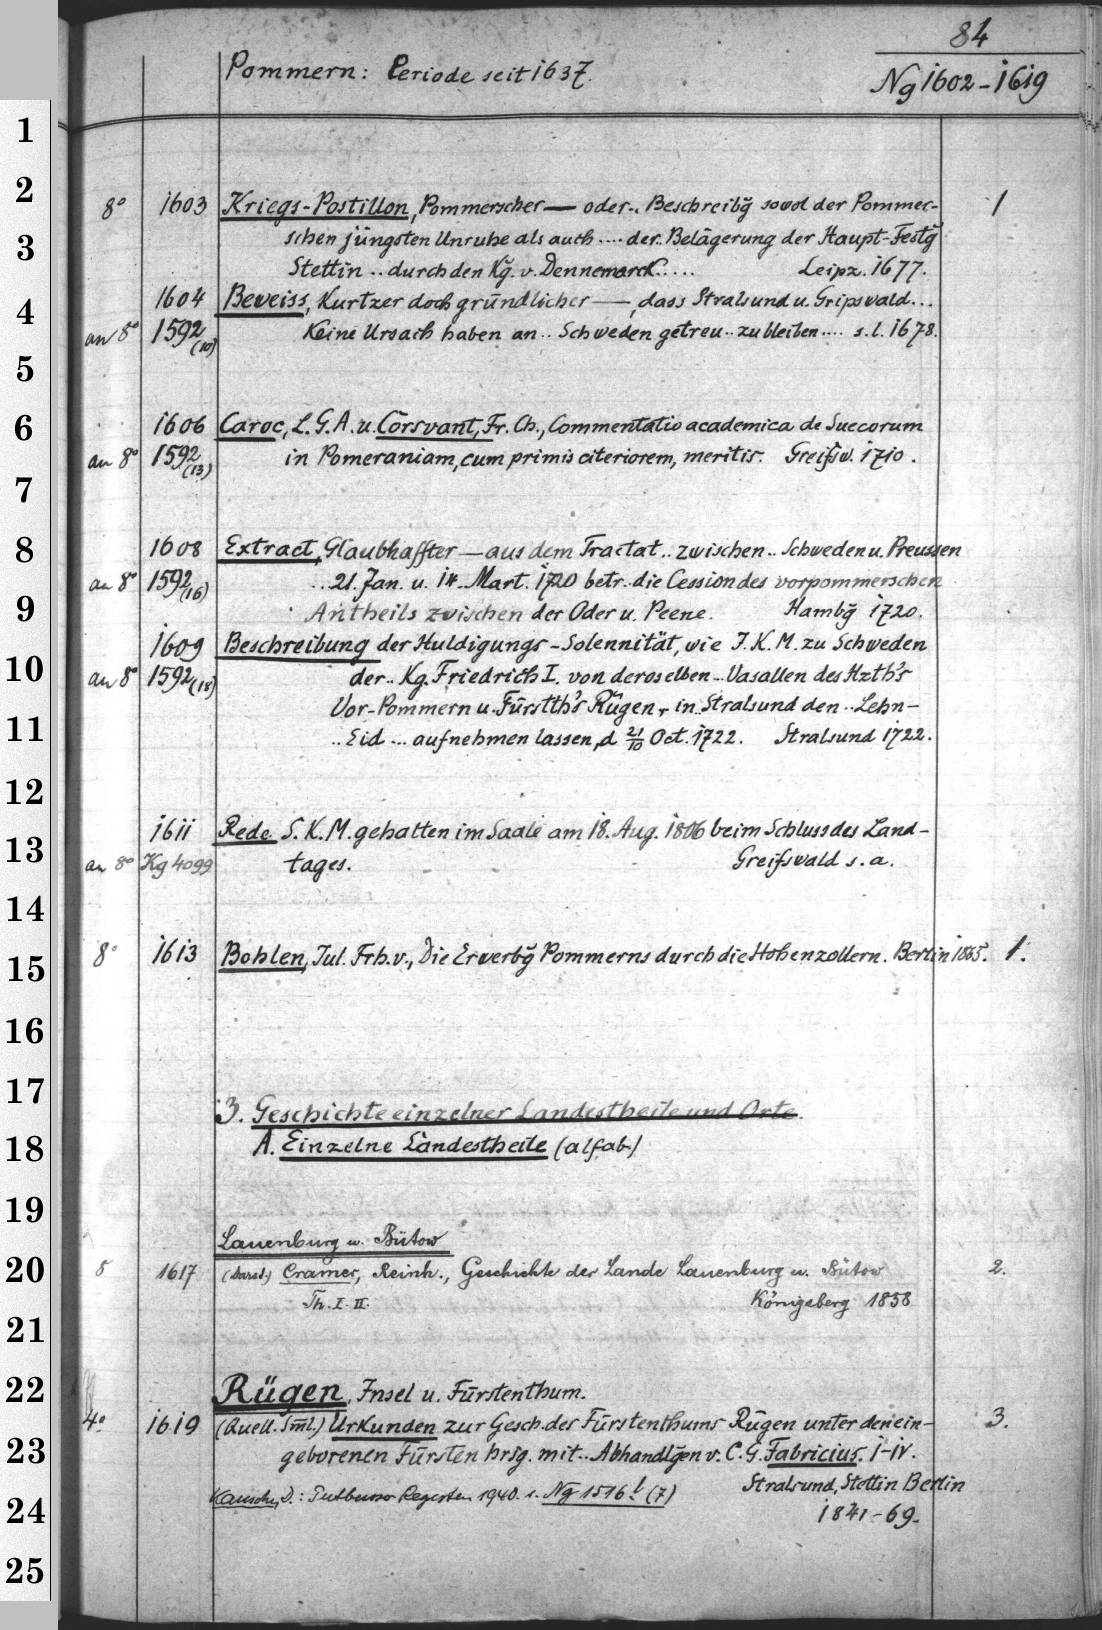 84
Pommern: Periode seit 1637.
Ng 1602-1619
1
2
8° 1603 Kriegs-Postillon, Pommerscher — oder.. Beschreibg̃ sowol der Pommer- 1
3
schen jüngsten Unruhe als auch .... der Belägerung der Haupt-Festg̃
Stettin .. durch den Kg. v. Dennemarck..... Leipz. 1677.
4
1604 Beweiss, Kurtzer doch gründlicher —, dass Stralsund u. Gripswald...
an 8° 1592 (10) Keine Ursach haben an .. Schweden getreu .. zu bleiben .... s.l. 1678.
5
6
1606 Caroc, L. G. A. u. Corsvant, Fr. Ch., Commentatio academica de Suecorum
an 8° 1592 (13) in Pomeraniam, cum primis citeriorem, meritis. Greifsw. 1710.
7
8
1608 Extract, Glaubhaffter — aus dem Tractat .. zwischen .. Schweden u. Preussen
an 8° 1592 (16) .. 21. Jan. u. 14. Mart. 1720 betr. die Cession des vorpommerschen
9
Antheils zwischen der Oder u. Peene. Hambg̃ 1720.
1609 Beschreibung der Huldigungs-Solennität, wie I. K. M. zu Schweden
10
an 8° 1592 (18) der .. Kg. Friedrich I. von deroselben .. Vasallen des Hzth's
Vor-Pommern u. Fürstth's Rügen, in Stralsund den .. Lehn-
11
.. Eid ... aufnehmen lassen, d 21/10 Oct. 1722. Stralsund 1722.
12
1611 Rede S. K. M. gehalten im Saale am 18. Aug. 1806 beim Schluss des Land-
13
an 8° Kg 4099 tages. Greifswald s. a.
14
8° 1613 Bohlen, Jul. Frh. v., Die Erwerbg̃ Pommerns durch die Hohenzollern. Berlin 1865. 1.
15
16
17
3. Geschichte einzelner Landestheile und Orte.
18
A. Einzelne Landestheile (alfab.)
19
Lauenburg u. Bütow
20
8 1617 (Darst.) Cramer, Reinh., Geschichte der Lande Lauenburg u. Bütow 2.
Th. I. II. Königsberg 1858
21
22
Rügen, Insel u. Fürstenthum.
4° 1619 (Quell. Sml.) Urkunden zur Gesch. der Fürstenthums Rügen unter den ein- 3.
23
geborenen Fürsten hrsg. mit .. Abhandlg̃en v. C. G. Fabricius. I-IV.
Stralsund, Stettin Berlin
24
: Putbusser Regesten 1940. s. Ng 1516 l (7)
1841-69.
25